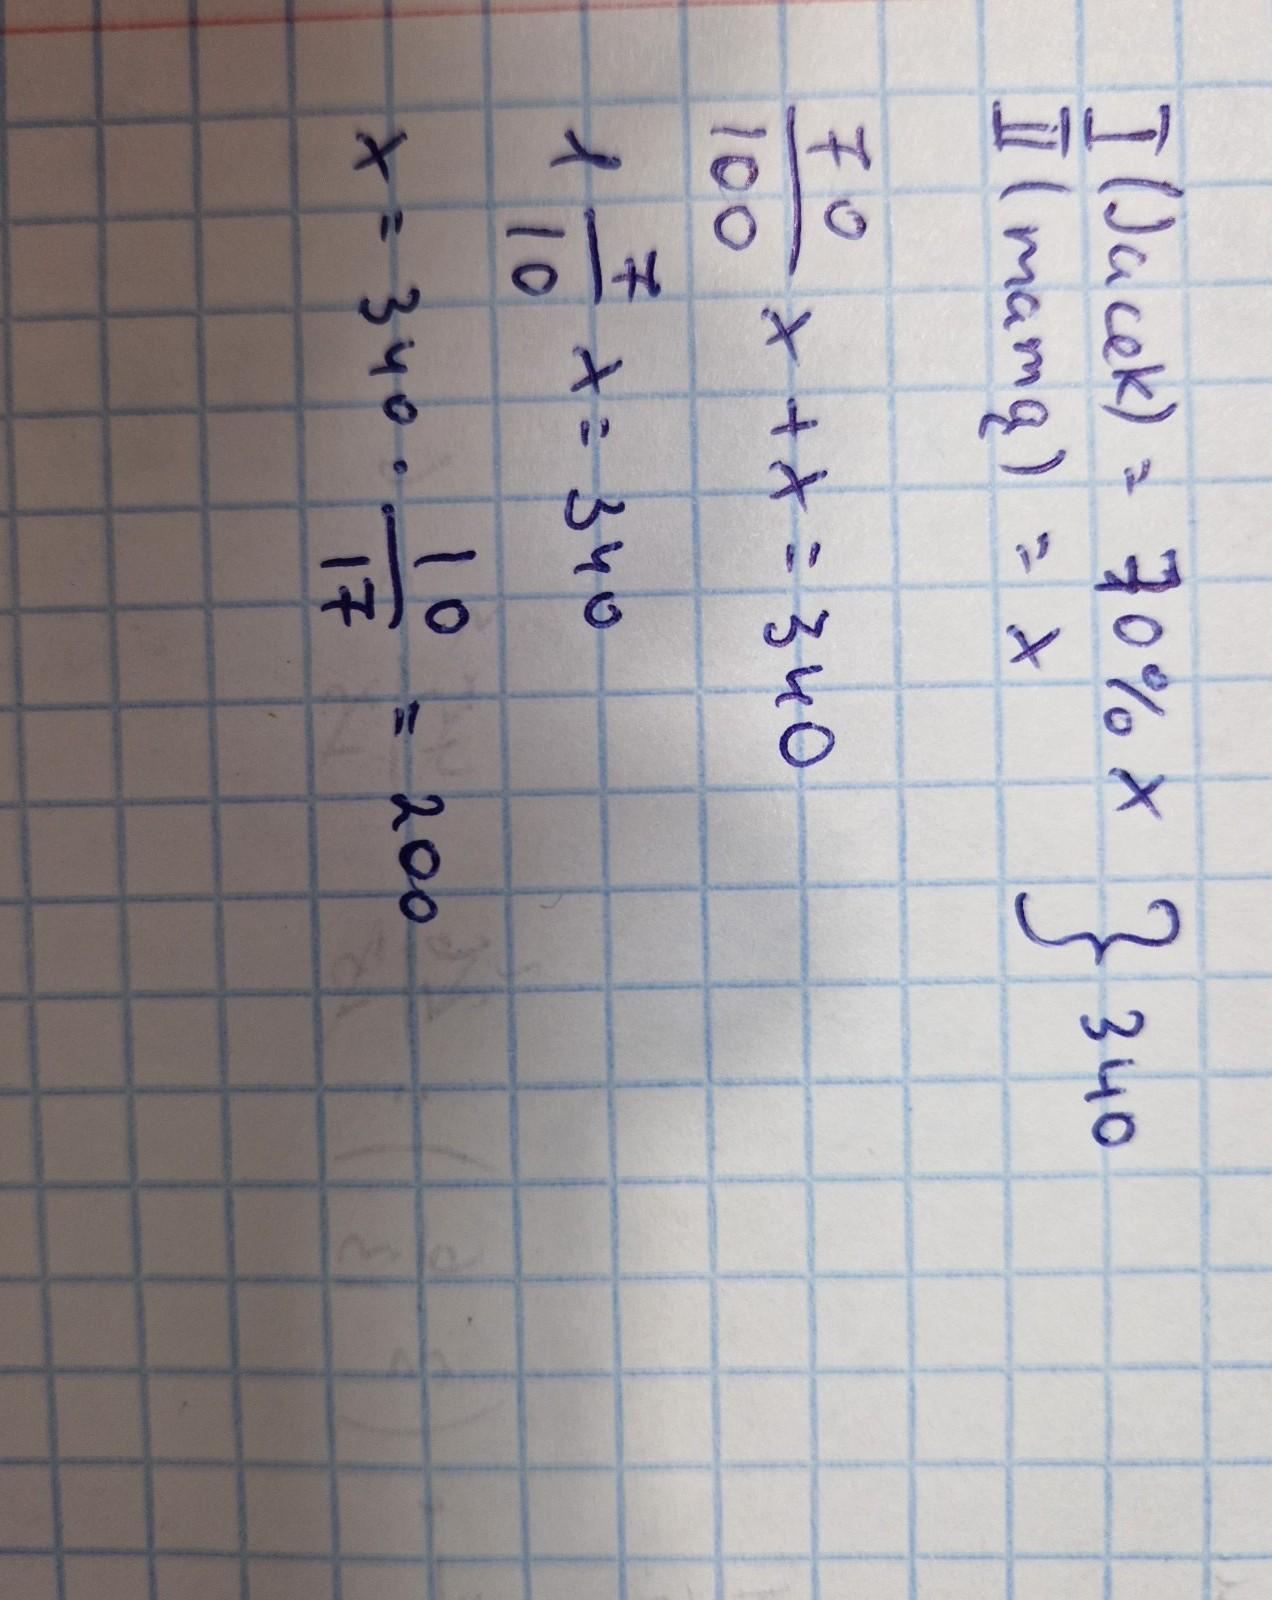 I (Jacek) = 70% x } 340
II (mamą) = x
70/100 x + x = 340
1 7/10 x = 340
x = 340 · 10/17 = 200